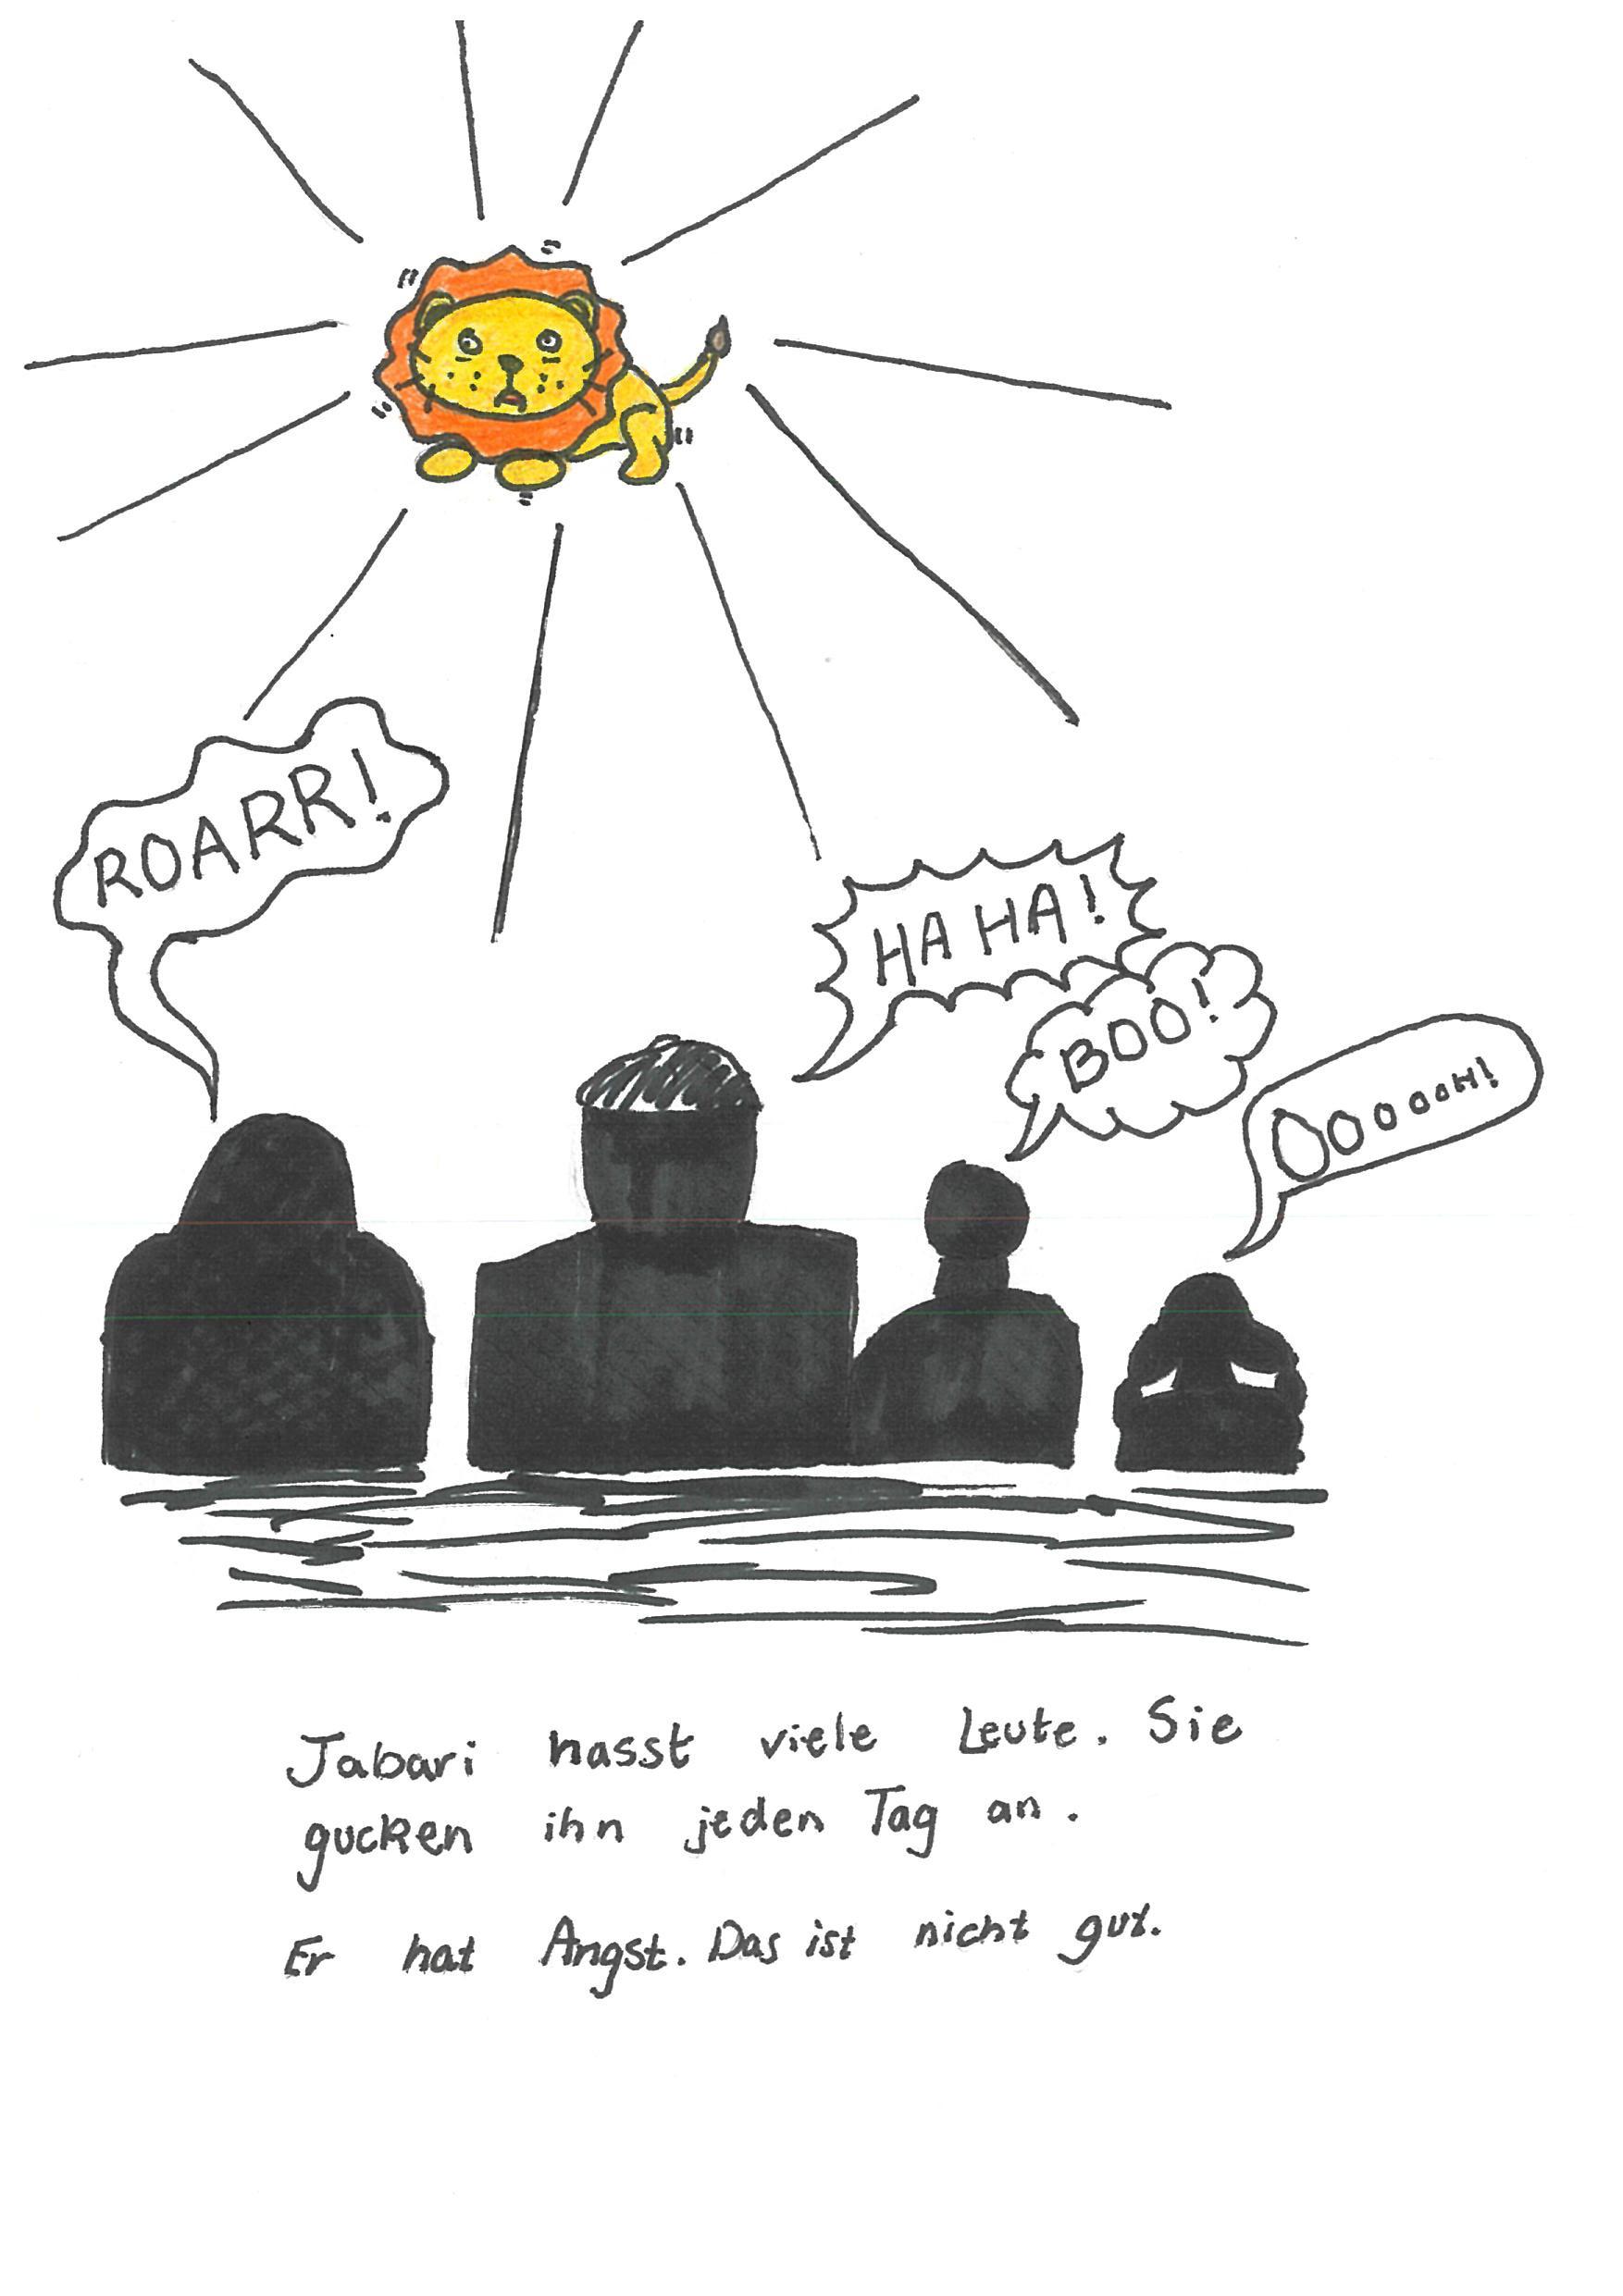 ROARR!
HA HA!
BOO!
OOOOOH!
Jabari hasst viele Leute. Sie
gucken ihn jeden Tag an.
Er hat Angst. Das ist nicht gut.